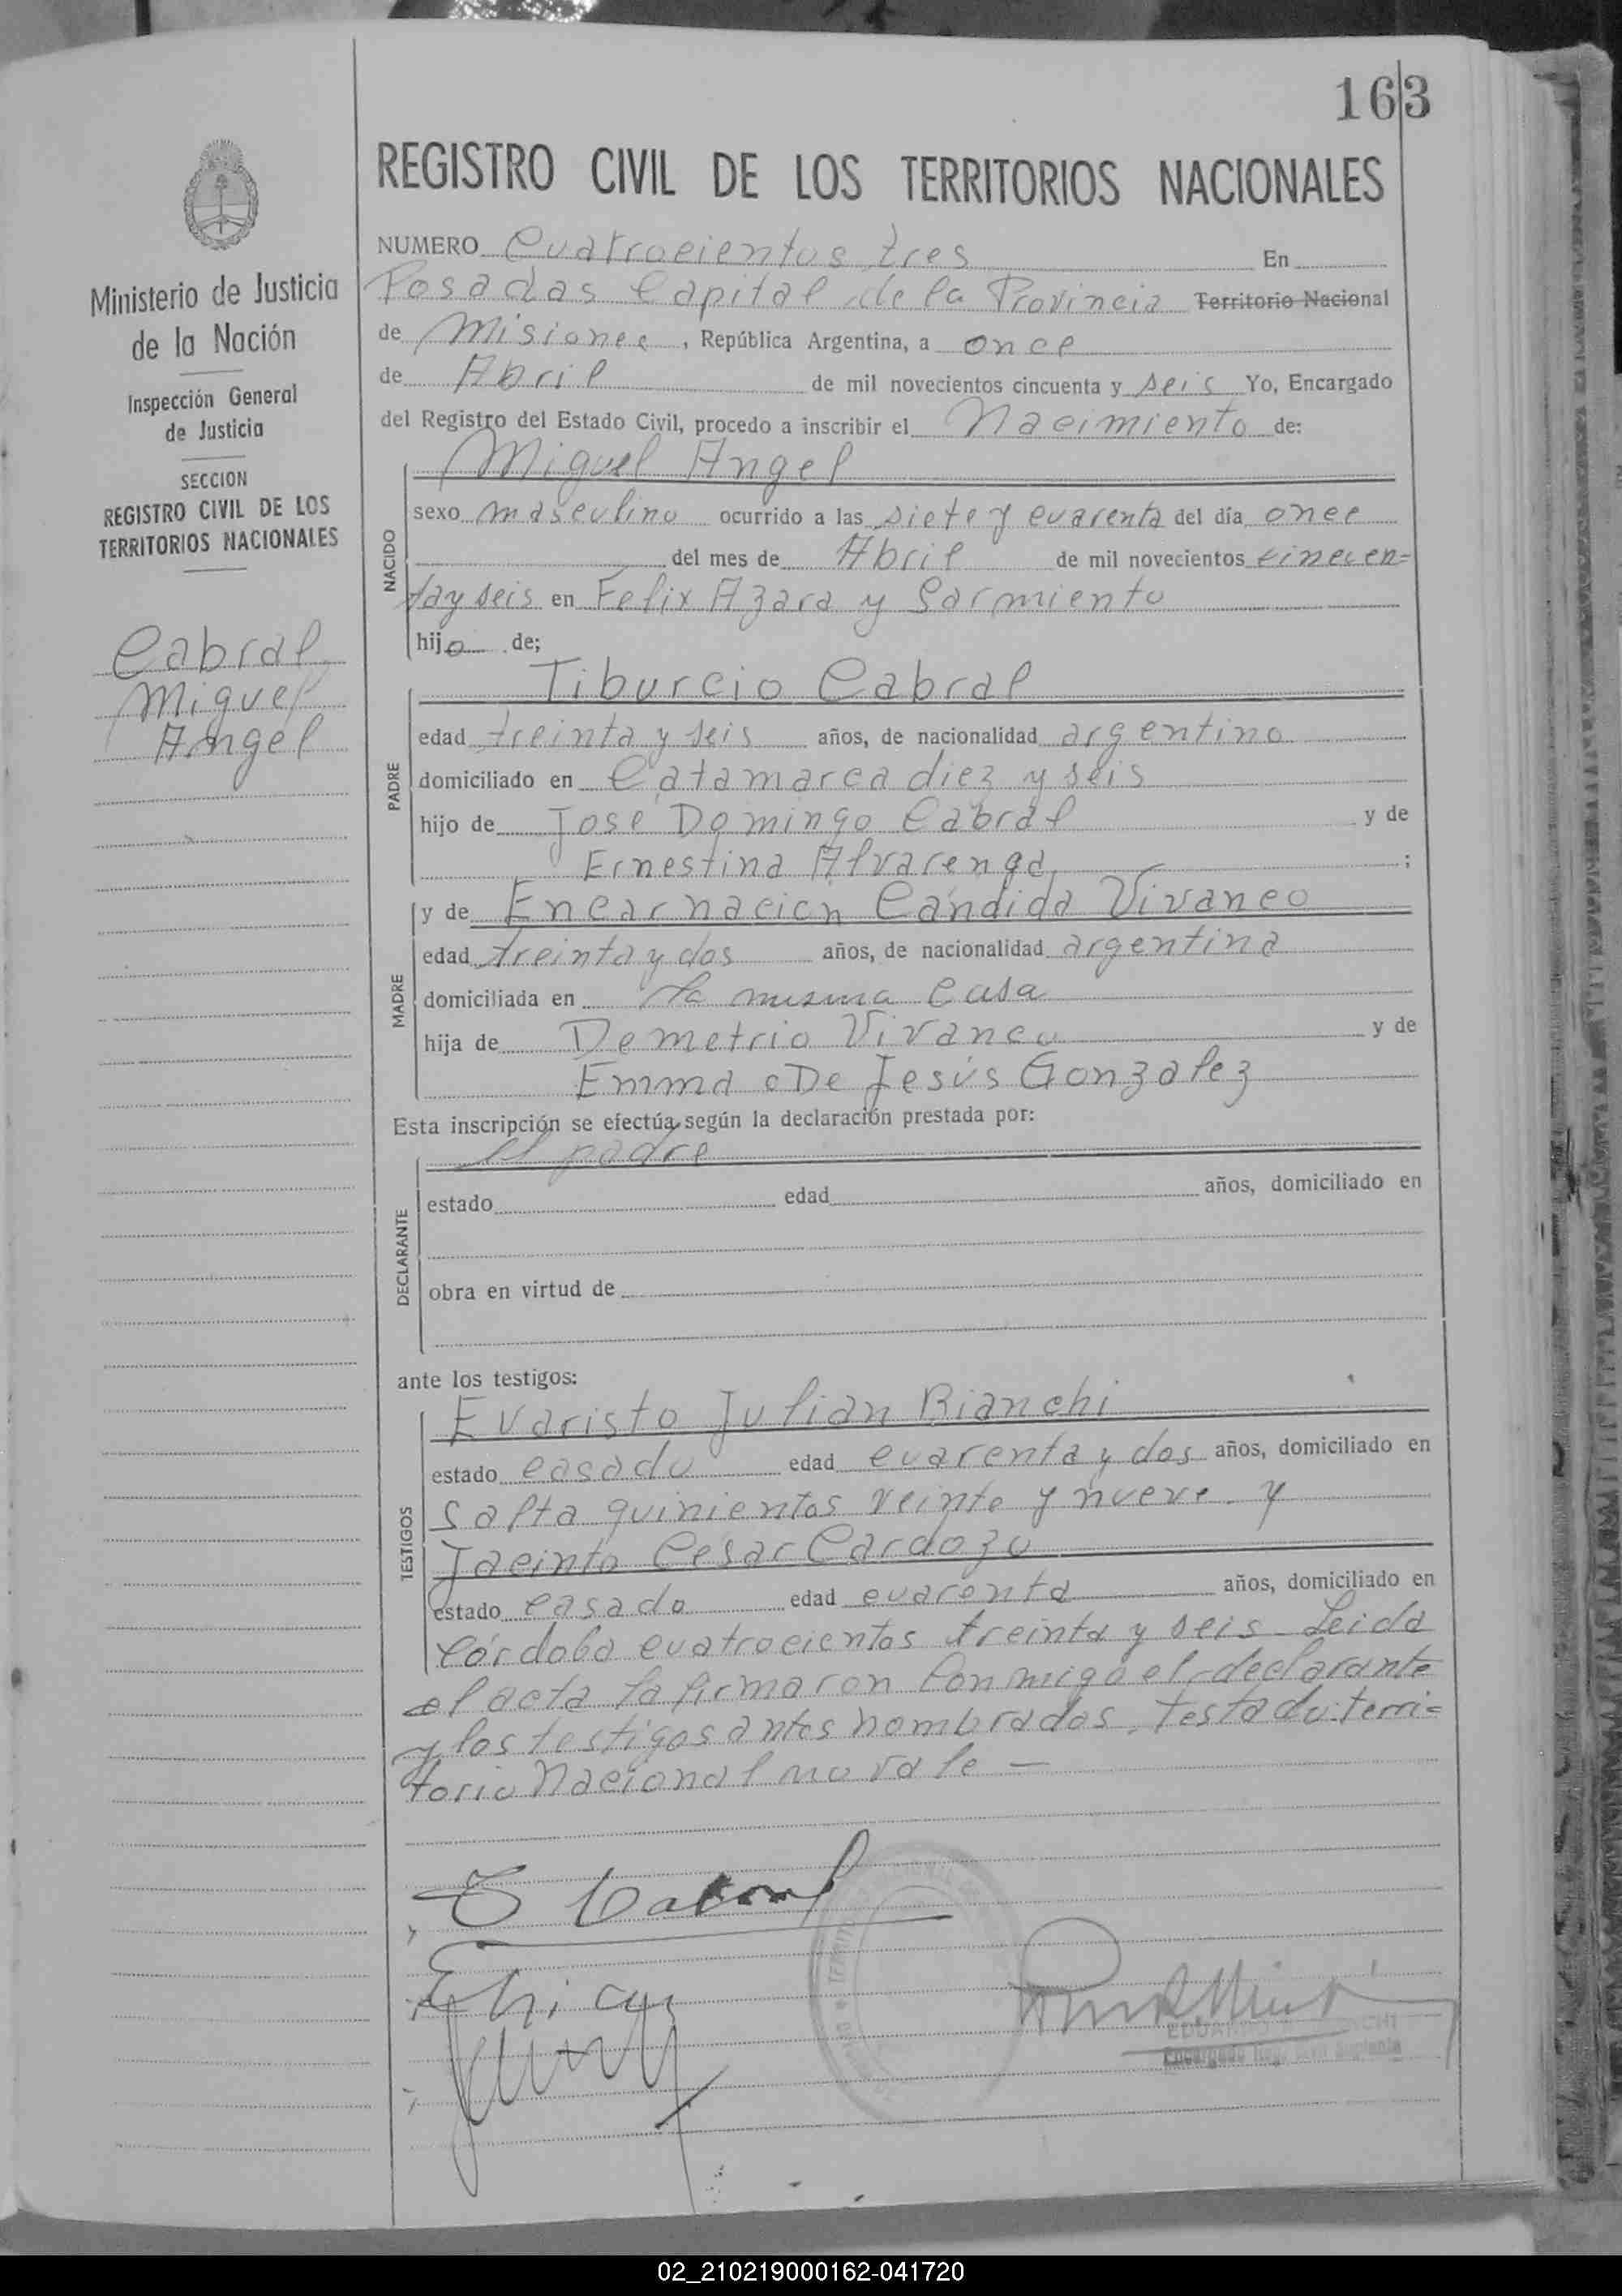 163
REGISTRO CIVIL DE LOS TERRITORIOS NACIONALES
Ministerio de Justicia
de la Nación
Inspección General
de Justicia
SECCION
REGISTRO CIVIL DE LOS
TERRITORIOS NACIONALES
Cabral
Miguel
Angel
NUMERO Cuatrocientos tres En
Posadas Capital de la Provincia Territorio Nacional
de Misiones, República Argentina, a once
de Abril de mil novecientos cincuenta y seis Yo, Encargado
del Registro del Estado Civil, procedo a inscribir el Nacimiento de:
NACIDO
Miguel Angel
sexo masculino ocurrido a las siete y cuarenta del día once
del mes de Abril de mil novecientos cincuen=
ta y seis en Felix Azara y Sarmiento
hijo de;
PADRE
Tiburcio Cabral
edad treinta y seis años, de nacionalidad argentino
domiciliado en Catamarca diez y seis
hijo de José Domingo Cabral y de
Ernestina Alvarenga ;
MADRE
y de Encarnacion Cándida Vivanco
edad treinta y dos años, de nacionalidad argentina
domiciliada en la misma casa
hija de Demetrio Vivanco y de
Emma De Jesús Gonzalez
Esta inscripción se efectúa según la declaración prestada por:
DECLARANTE
el padre
estado edad años, domiciliado en
obra en virtud de
ante los testigos:
TESTIGOS
Evaristo Julian Bianchi
estado casado edad cuarenta y dos años, domiciliado en
Salta quinientos veinte y nueve. y
Jacinto César Cardozo
estado casado edad cuarenta años, domiciliado en
Córdoba cuatrocientos treinta y seis - Leida
el acta la firmaron conmigo el declarante
y los testigos antes nombrados. Testado: terri=
torio Nacional no vale —
T Cabral
EDUARDO
Encargado Reg. Civil Suplente
02_210219000162-041720